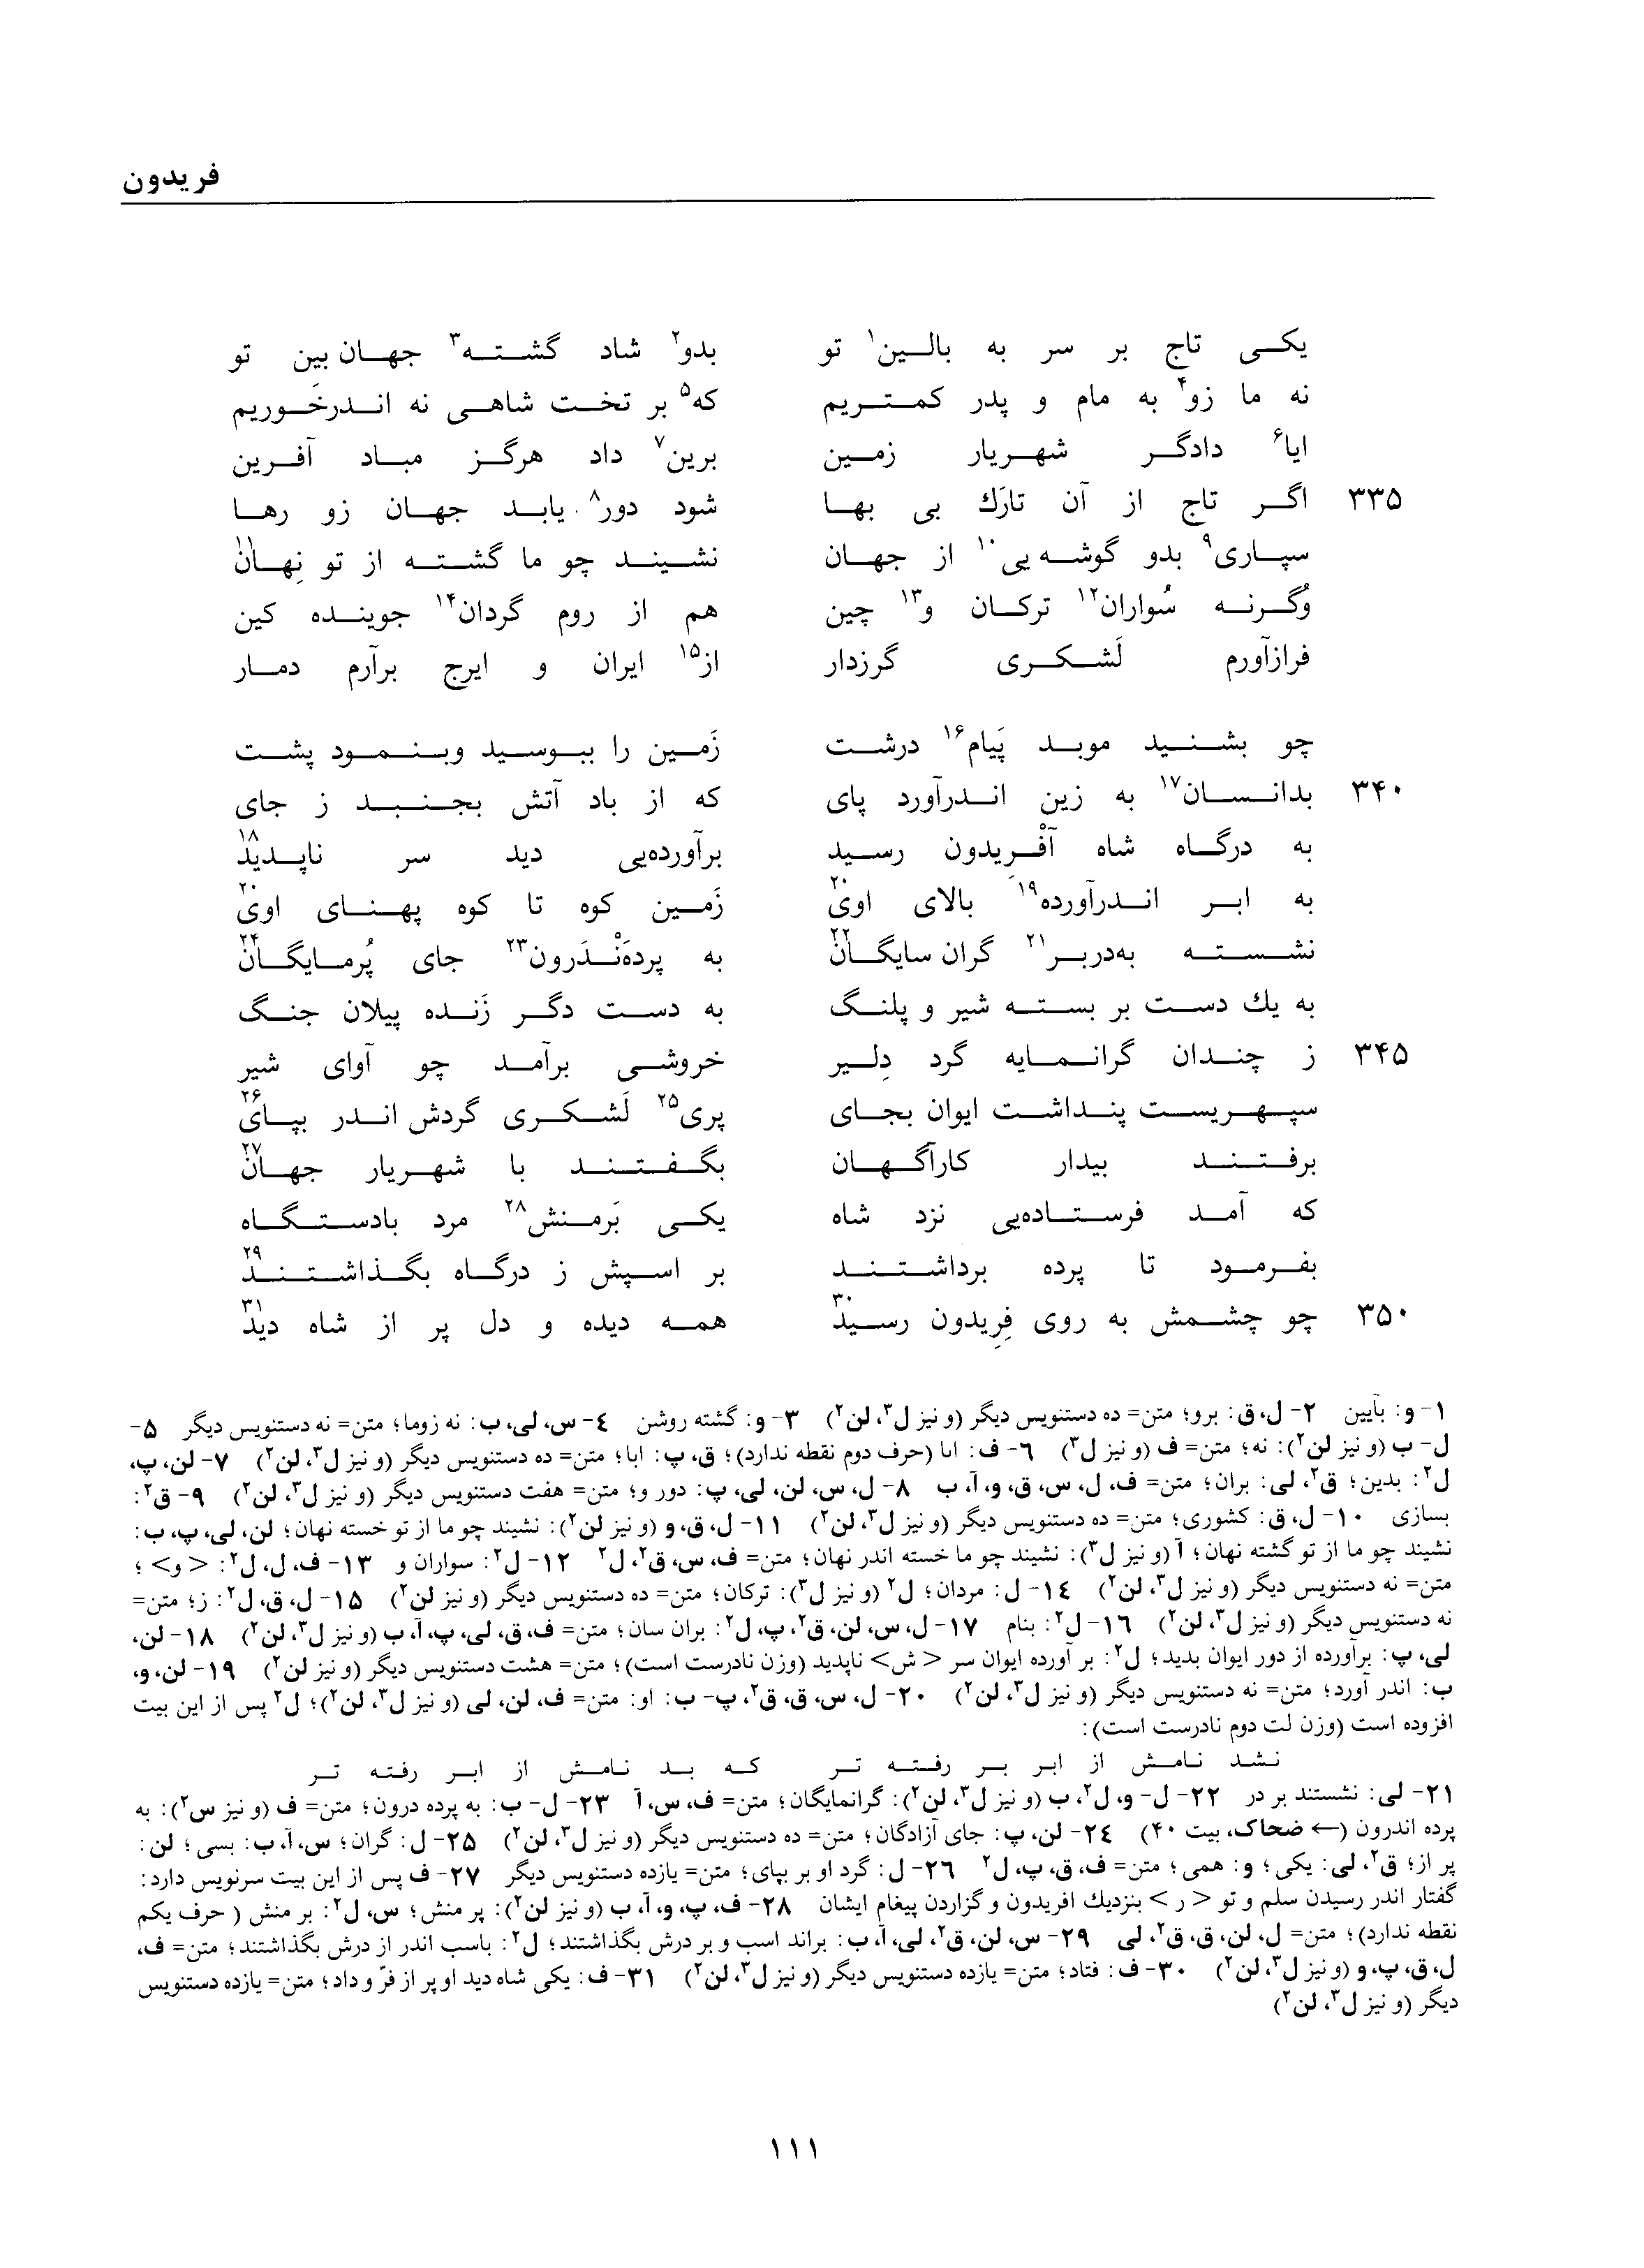 فریدون
یکی تاج بر سر به بالین۱ تو بدو۲ شاد گشته۳ جهان‌بین تو
نه ما زو۴ به مام و پدر کمتریم که۵ بر تخت شاهی نه اندرخَوریم
ایا۶ دادگر شهریار زمین برین۷ داد هرگز مباد آفرین
۳۳۵ اگر تاج از آن تارَك بی بها شود دور۸ یابد جهان زو رها
سپاری۹ بدو گوشه‌یی۱۰ از جهان نشیند چو ما گشته از تو نِهان۱۱
وُگرنه سُواران۱۲ ترکان و۱۳ چین هم از روم گردان۱۴ جوینده کین
فرازآورم لَشکری گرزدار از۱۵ ایران و ایرج برآرم دمار
چو بشنید موبد پَیام۱۶ درشت زَمین را ببوسید وبنمود پشت
۳۴۰ بدانسان۱۷ به زین اندرآورد پای که از باد آتش بجنبد ز جای
به درگاه شاه آفْریدون رسید برآورده‌یی دید سر ناپدید۱۸
به ابر اندرآورده۱۹ بالای اوی۲۰ زَمین کوه تا کوه پهنای اوی۲۰
نشسته به‌دربر۲۱ گران سایگان۲۲ به پردهَ‌نْدَرون۲۳ جای پُرمایگان۲۴
به یك دست بر بسته شیر و پلنگ به دست دگر زَنده پیلان جنگ
۳۴۵ ز چندان گرانمایه گرد دِلیر خروشی برآمد چو آوای شیر
سپهریست پنداشت ایوان بجای پری۲۵ لَشکری گردش اندر بپای۲۶
برفتند بیدار کارآگهان بگفتند با شهریار جهان۲۷
که آمد فرستاده‌یی نزد شاه یکی بَرمنش۲۸ مرد بادستگاه
بفرمود تا پرده برداشتند بر اسپش ز درگاه بگذاشتند۲۹
۳۵۰ چو چشمش به روی فِریدون رسید۳۰ همه دیده و دل پر از شاه دید۳۱
۱- و: بآیین ۲- ل، ق: برو؛ متن= ده دستنویس دیگر (و نیز ل۳، لن۲) ۳- و: گشته روشن ٤- س، لی، ب: نه زوما؛ متن= نه دستنویس دیگر ۵-
ل- ب (و نیز لن۲): نه؛ متن= ف (و نیز ل۳) ٦- ف: اىا (حرف دوم نقطه ندارد)؛ ق، پ: ابا؛ متن= ده دستنویس دیگر (و نیز ل۳، لن۲) ۷- لن، پ،
ل۲: بدین؛ ق۲، لی: بران؛ متن= ف، ل، س، ق، و، آ، ب ۸- ل، س، لن، لی، پ: دور و؛ متن= هفت دستنویس دیگر (و نیز ل۳، لن۲) ۹- ق۲:
بسازی ۱۰- ل، ق: کشوری؛ متن= ده دستنویس دیگر (و نیز ل۳، لن۲) ۱۱- ل، ق، و (و نیز لن۲): نشیند چو ما از تو خسته نهان؛ لن، لی، پ، ب:
نشیند چو ما از تو گشته نهان؛ آ (و نیز ل۳): نشیند چو ما خسته اندر نهان؛ متن= ف، س، ق۲، ل۲ ۱۲- ل۲: سواران و ۱۳- ف، ل، ل۲: <و>؛
متن= نه دستنویس دیگر (و نیز ل۳، لن۲) ۱٤- ل: مردان؛ ل۲ (و نیز ل۳): ترکان؛ متن= ده دستنویس دیگر (و نیز لن۲) ۱۵- ل، ق، ل۲: ز؛ متن=
نه دستنویس دیگر (و نیز ل۳، لن۲) ۱٦- ل۲: بنام ۱۷- ل، س، لن، ق۲، پ، ل۲: بران سان؛ متن= ف، ق، لی، پ، آ، ب (و نیز ل۳، لن۲) ۱۸- لن،
لی، پ: برآورده از دور ایوان بدید؛ ل۲: بر آورده ایوان سر <ش> ناپدید (وزن نادرست است)؛ متن= هشت دستنویس دیگر (و نیز لن۲) ۱۹- لن، و،
ب: اندر آورد؛ متن= نه دستنویس دیگر (و نیز ل۳، لن۲) ۲۰- ل، س، ق، ق۲، پ- ب: او: متن= ف، لن، لی (و نیز ل۳، لن۲)؛ ل۲ پس از این بیت
افزوده است (وزن لت دوم نادرست است):
نشد نامش از ابر بر رفته تر که بد نامش از ابر رفته تر
۲۱- لی: نشستند بر در ۲۲- ل- و، ل۲، ب (و نیز ل۳، لن۲): گرانمایگان؛ متن= ف، س، آ ۲۳- ل- ب: به پرده درون؛ متن= ف (و نیز س۲): به
پرده اندرون (← ضحاک، بیت ۴۰) ۲٤- لن، پ: جای آزادگان؛ متن= ده دستنویس دیگر (و نیز ل۳، لن۲) ۲۵- ل: گران؛ س، آ، ب: بسی؛ لن:
پر از؛ ق۲، لی: یکی؛ و: همی؛ متن= ف، ق، پ، ل۲ ۲٦- ل: گرد او بر بپای؛ متن= یازده دستنویس دیگر ۲۷- ف پس از این بیت سرنویس دارد:
گفتار اندر رسیدن سلم و تو <ر> بنزدیك افریدون و گزاردن پیغام ایشان ۲۸- ف، پ، و، آ، ب (و نیز لن۲): پر منش؛ س، ل۲: بر منش (حرف یکم
نقطه ندارد)؛ متن= ل، لن، ق، ق۲، لی ۲۹- س، لن، ق۲، لی، آ، ب: براند اسب و بر درش بگذاشتند؛ ل۲: باسب اندر از درش بگذاشتند؛ متن= ف،
ل، ق، پ، و (و نیز ل۳، لن۲) ۳۰- ف: فتاد؛ متن= یازده دستنویس دیگر (و نیز ل۳، لن۲) ۳۱- ف: یکی شاه دید او پر از فرّ و داد؛ متن= یازده دستنویس
دیگر (و نیز ل۳، لن۲)
۱۱۱